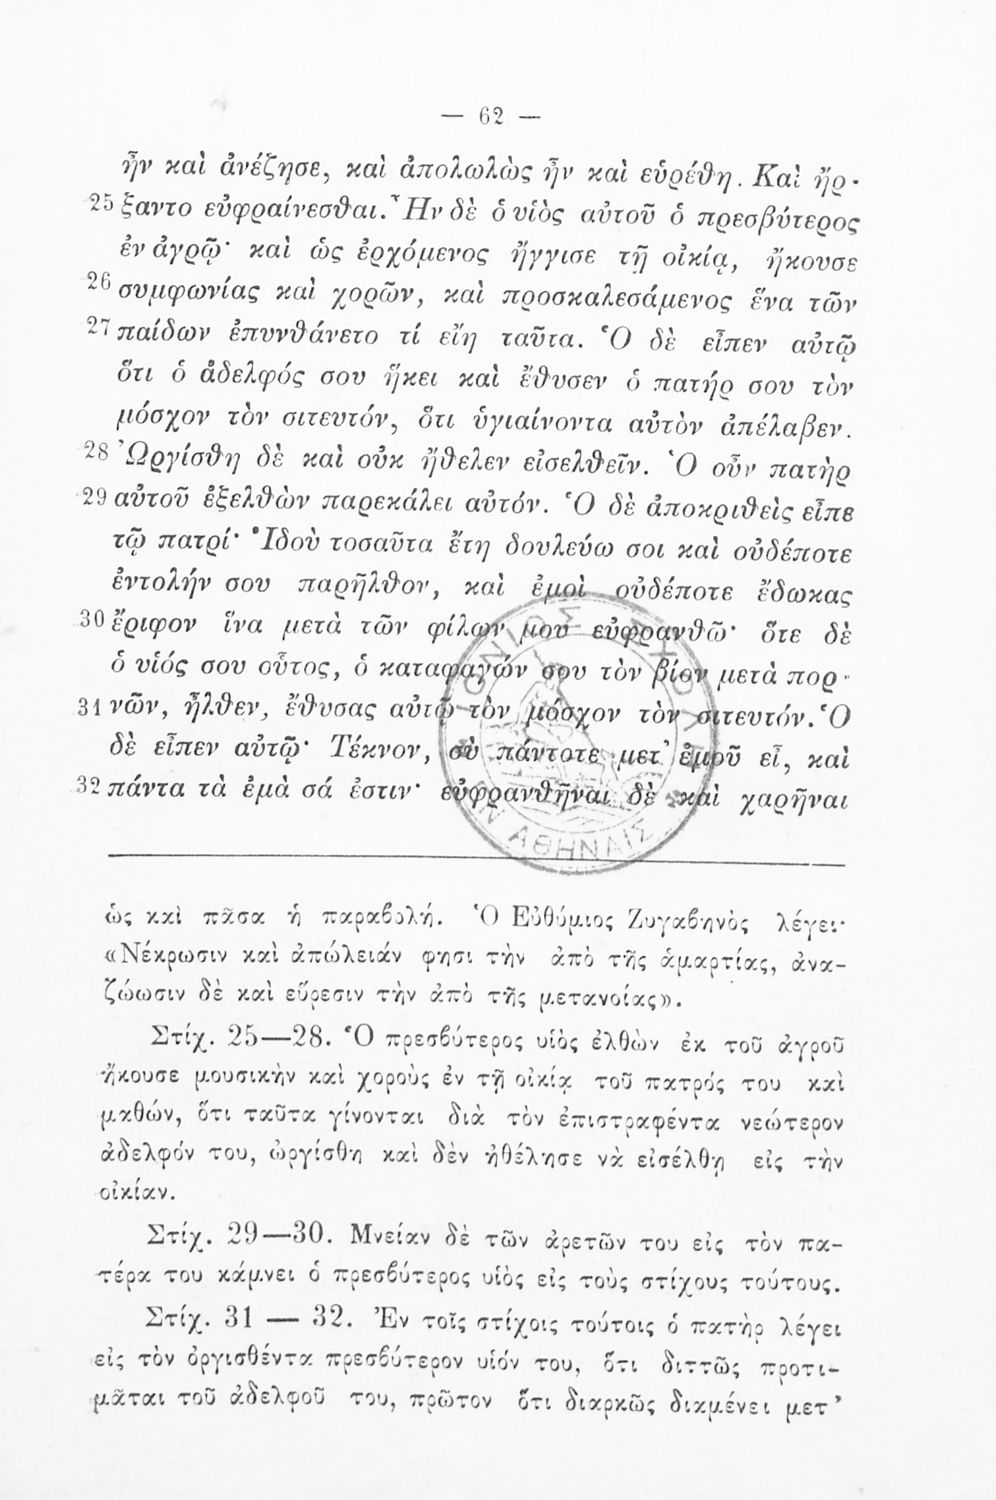 — 62 —
ἦν καὶ ἀνέζησε, καὶ ἀπολωλὼς ἦν καὶ εὑρέθη. Καὶ ἤρ-
25 ξαντο εὐφραίνεσθαι. Ἦν δὲ ὁ υἱὸς αὐτοῦ ὁ πρεσβύτερος
ἐν ἀγρῷ· καὶ ὡς ἐρχόμενος ἤγγισε τῇ οἰκίᾳ, ἤκουσε
26 συμφωνίας καὶ χορῶν, καὶ προσκαλεσάμενος ἕνα τῶν
27 παίδων ἐπυνθάνετο τί εἴη ταῦτα. Ὁ δὲ εἶπεν αὐτῷ
ὅτι ὁ ἀδελφός σου ἥκει καὶ ἔθυσεν ὁ πατήρ σου τὸν
μόσχον τὸν σιτευτόν, ὅτι ὑγιαίνοντα αὐτὸν ἀπέλαβεν.
28 Ὠργίσθη δὲ καὶ οὐκ ἤθελεν εἰσελθεῖν. Ὁ οὖν πατὴρ
29 αὐτοῦ ἐξελθὼν παρεκάλει αὐτόν. Ὁ δὲ ἀποκριθεὶς εἶπε
τῷ πατρί· Ἰδοὺ τοσαῦτα ἔτη δουλεύω σοι καὶ οὐδέποτε
ἐντολήν σου παρῆλθον, καὶ ἐμοὶ οὐδέποτε ἔδωκας
30 ἔριφον ἵνα μετὰ τῶν φίλων μου εὐφρανθῶ· ὅτε δὲ
ὁ υἱός σου οὗτος, ὁ καταφαγών σου τὸν βίον μετὰ πορ-
31 νῶν, ἦλθεν, ἔθυσας αὐτῷ τὸν μόσχον τὸν σιτευτόν. Ὁ
δὲ εἶπεν αὐτῷ· Τέκνον, σὺ πάντοτε μετ' ἐμοῦ εἶ, καὶ
32 πάντα τὰ ἐμὰ σά ἐστιν· εὐφρανθῆναι δὲ καὶ χαρῆναι
ΙΟΝΙΟΣ ΣΧΟΛΗ
ΕΝ ΑΘΗΝΑΙΣ
ὡς καὶ πᾶσα ἡ παραβολή. Ὁ Εὐθύμιος Ζυγαβηνὸς λέγει·
«Νέκρωσιν καὶ ἀπώλειάν φησι τὴν ἀπὸ τῆς ἁμαρτίας, ἀνα-
ζώωσιν δὲ καὶ εὕρεσιν τὴν ἀπὸ τῆς μετανοίας».
Στίχ. 25—28. Ὁ πρεσβύτερος υἱὸς ἐλθὼν ἐκ τοῦ ἀγροῦ
ἤκουσε μουσικὴν καὶ χοροὺς ἐν τῇ οἰκίᾳ τοῦ πατρός του καὶ
μαθών, ὅτι ταῦτα γίνονται διὰ τὸν ἐπιστραφέντα νεώτερον
ἀδελφόν του, ὠργίσθη καὶ δὲν ἠθέλησε νὰ εἰσέλθῃ εἰς τὴν
οἰκίαν.
Στίχ. 29—30. Μνείαν δὲ τῶν ἀρετῶν του εἰς τὸν πα-
τέρα του κάμνει ὁ πρεσβύτερος υἱὸς εἰς τοὺς στίχους τούτους.
Στίχ. 31 — 32. Ἐν τοῖς στίχοις τούτοις ὁ πατὴρ λέγει
εἰς τὸν ὀργισθέντα πρεσβύτερον υἱόν του, ὅτι διττῶς προτι-
μᾶται τοῦ ἀδελφοῦ του, πρῶτον ὅτι διαρκῶς διαμένει μετ'